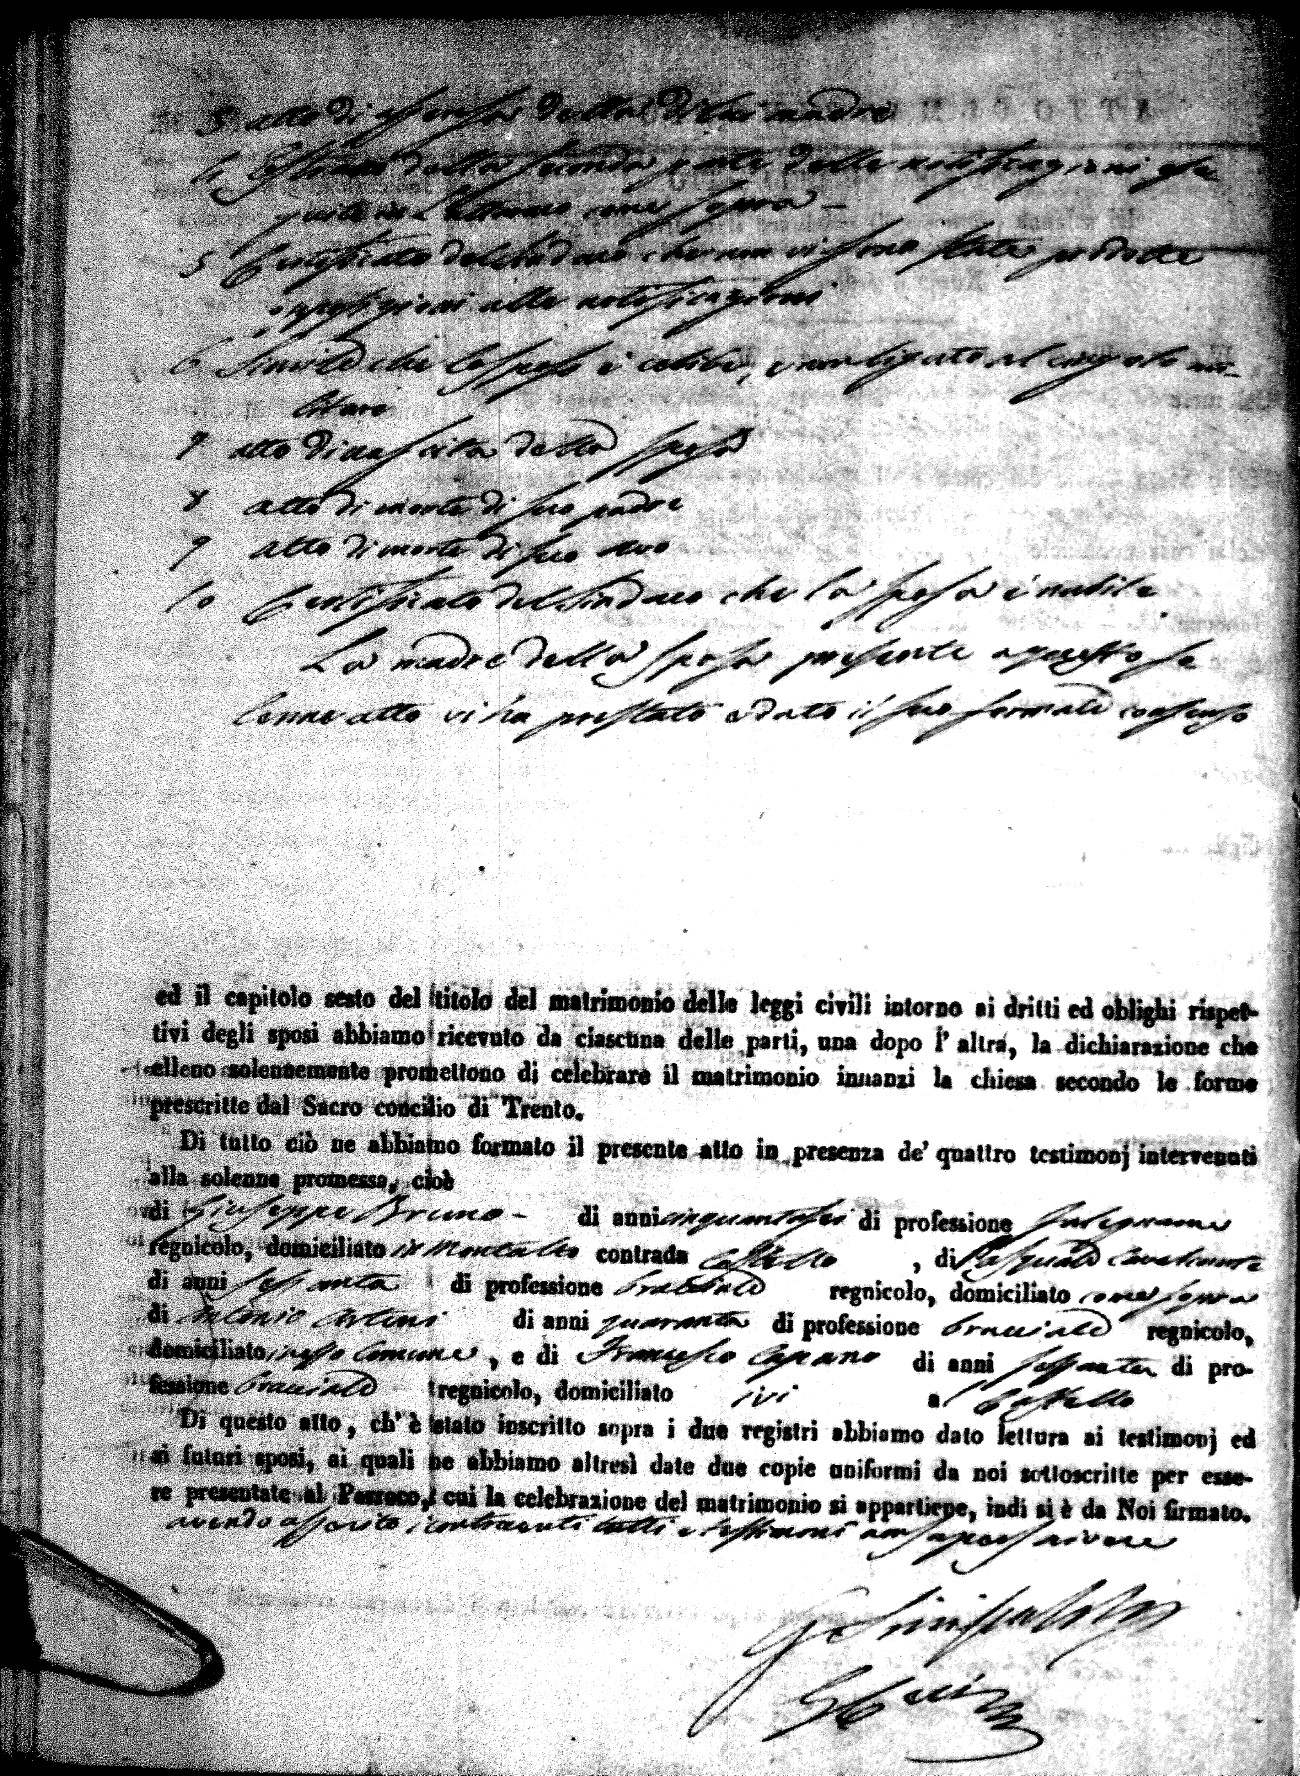 3 atto di assenso della di lui madre
4 Estratto della seconda parte delle notificazioni ese
guite in come sopra
5 Certificato del Sindaco che non vi sono state prodotte
opposizioni alle notificazioni
6 Simile che lo sposo è celibe, e non ligato al cingolo mi-
litare
7 atto di nascita della sposa
8 atto di morte di suo padre
9 atto di morte di suo avo
10 Certificato del Sindaco che la sposa è nubile
La madre della sposa presente a questo so
lenne atto vi ha prestato e dato il suo formale consenso
ed il capitolo sesto del titolo del matrimonio delle leggi civili intorno ai dritti ed oblighi rispet-
tivi degli sposi abbiamo ricevuto da ciascuna delle parti, una dopo l' altra, la dichiarazione che
elleno solennemente promettono di celebrare il matrimonio innanzi la chiesa secondo le forme
prescritte dal Sacro concilio di Trento.
Di tutto ciò ne abbiamo formato il presente atto in presenza de' quattro testimonj intervenuti
alla solenne promessa, cioè
di Giuseppe Bruno - di anni cinquantasei di professione falegname
regnicolo, domiciliato in Montalto contrada Castello , di Pasquale Cavalcante
di anni sessanta di professione bracciale regnicolo, domiciliato come sopra
di Antonio di anni quaranta di professione bracciale regnicolo,
domiciliato in esso Comune , e di Francesco Capano di anni sessanta di pro-
fessione bracciale regnicolo, domiciliato ivi a Castello
Di questo atto, ch' è stato inscritto sopra i due registri abbiamo dato lettura ai testimonj ed
ai futuri sposi, ai quali ne abbiamo altresì date due copie uniformi da noi sottoscritte per esse-
re presentate al Parroco, cui la celebrazione del matrimonio si appartiene, indi si è da Noi firmato.
avendo asserito i contraenti tutti e testimoni non saper scrivere